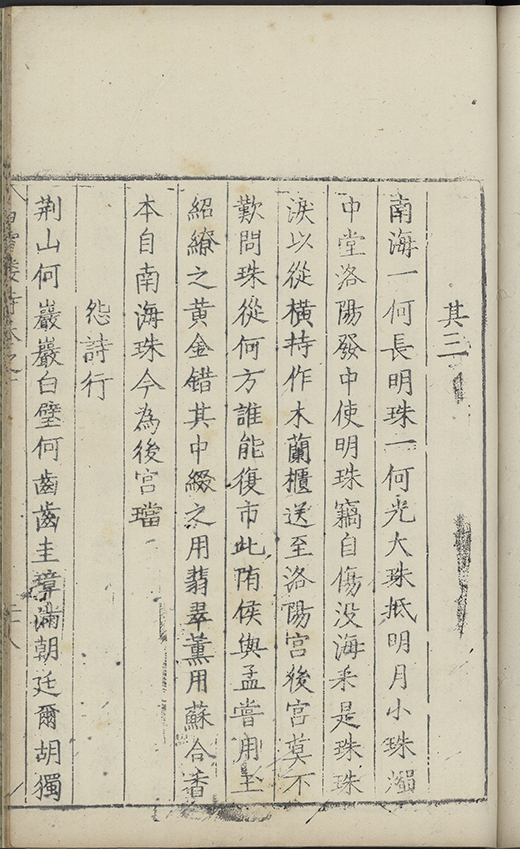 其三
南海一何長明珠一何光大珠抵明月小珠濁
中堂洛陽發中使明珠竊自傷没海采是珠珠
淚以從橫持作木蘭櫃送至洛陽宮後宮莫不
歎問珠從何方誰能復市此隋侯與孟嘗用玉
紹繚之黃金錯其中綴之用翡翠薰用蘇合香
本自南海珠今為後宮璫
怨詩行
荆山何巖巖白璧何齒齒圭璋滿朝廷爾胡獨